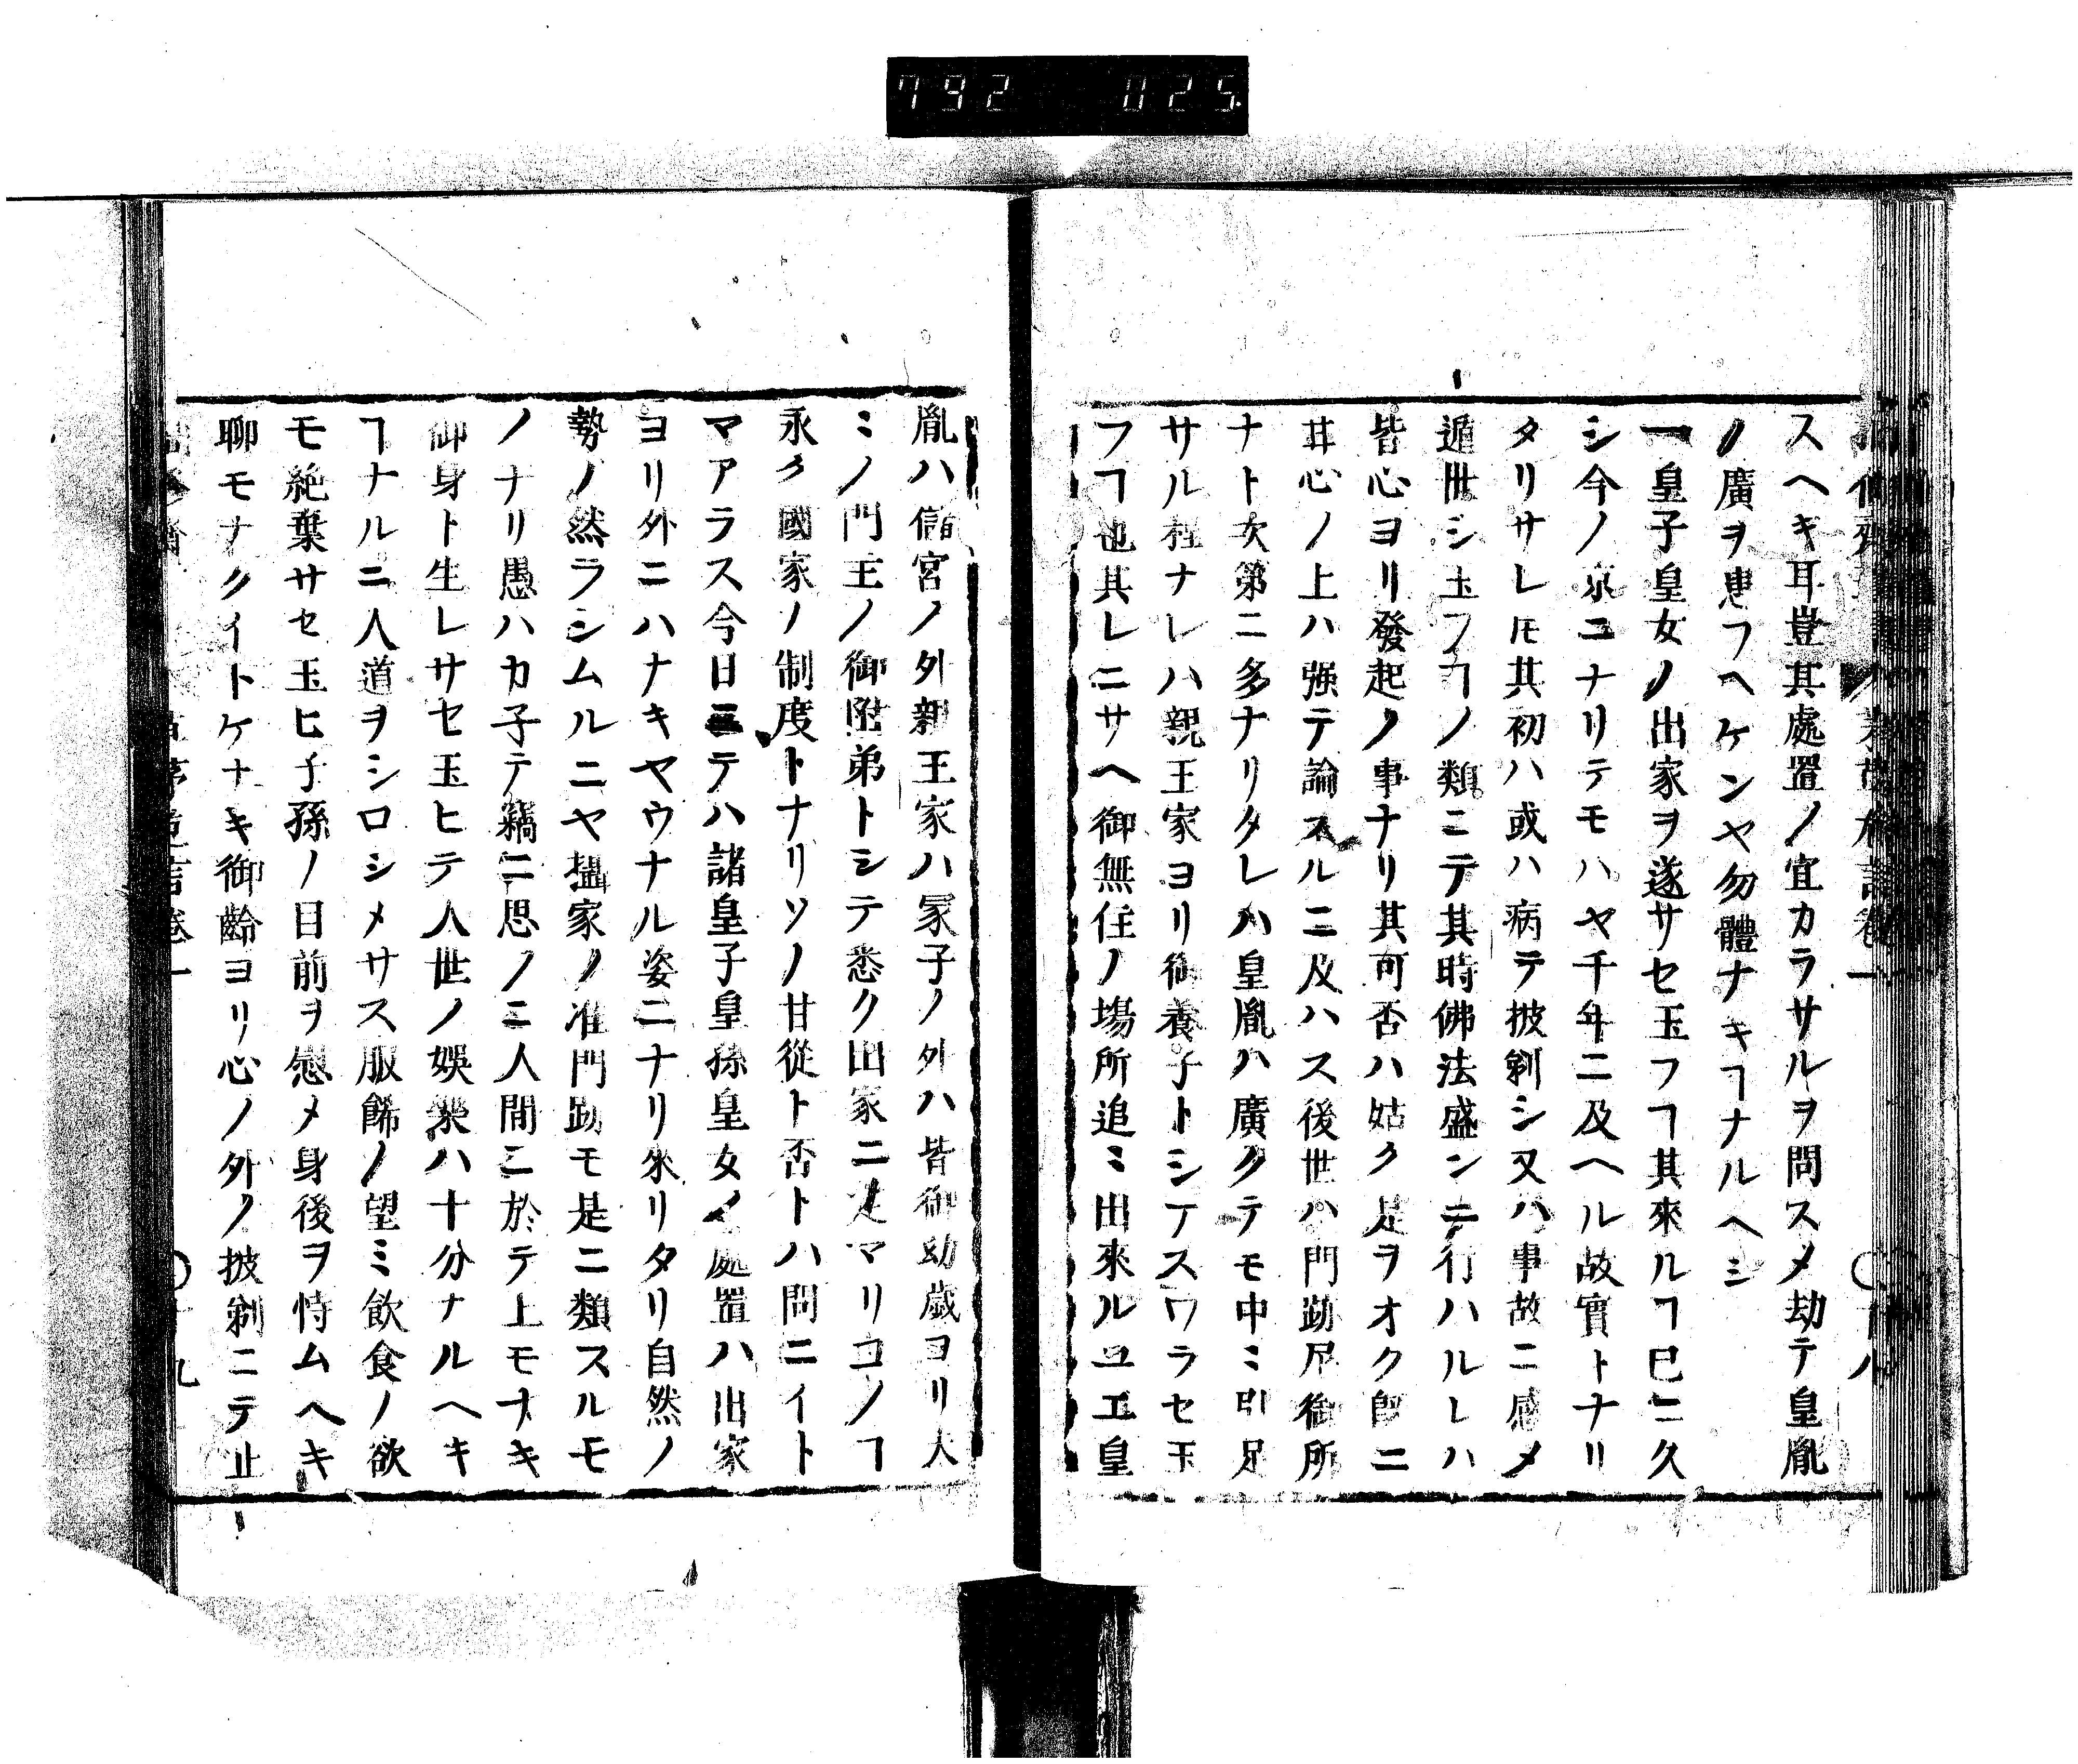 792 025
スヘキ耳豈其處置ノ宜カラサルヲ問スメ劫テ皇胤
ノ廣ヲ患フヘケンヤ勿體ナキヿナルヘシ
一皇子皇女ノ出家ヲ遂サセ玉フヿ其來ルヿ巳ニ久
シ今ノ京ニナリテモハヤ千年ニ及ヘル故實トナリ
タリサレ𪜈其初ハ或ハ病テ披剃シ又ハ事故ニ感メ
遁世シ玉フヿノ類ニテ其時佛法盛ンニ行ハルレハ
皆心ヨリ發起ノ事ナリ其可否ハ姑ク是ヲオク卽ニ
其心ノ上ハ强テ論スルニ及ハス後世ハ門跡尼御所
ナト次第ニ多ナリタレハ皇胤ハ廣クテモ中ミ引足
サル程ナレハ親王家ヨリ御養子トシテスワラセ玉
フヿ也其レニサヘ御無住ノ場所追ミ出來ルユエ皇
胤ハ儲宮ノ外親王家ハ冢子ノ外ハ皆御幼歲ヨリ大
ミノ門主ノ御附弟トシテ悉ク出家ニ定マリコノヿ
永ク國家ノ制度トナリソノ甘從ト否トハ問ニイト
マアラス今日ニテハ諸皇子皇孫皇女ノ處置ハ出家
ヨリ外ニハナキヤウナル姿ニナリ來リタリ自然ノ
勢ノ然ラシムルニヤ攝家ノ准門跡モ是ニ類スルモ
ノナリ愚ハカ子テ竊ニ思ノミ人間ニ於テ上モナキ
御身ト生レサセ玉ヒテ人世ノ娛樂ハ十分ナルヘキ
ヿナルニ人道ヲシロシメサス服餙ノ望ミ飮食ノ欲
モ絕棄サセ玉ヒ子孫ノ目前ヲ慰メ身後ヲ恃ムヘキ
聊モナクイトケナキ御齡ヨリ心ノ外ノ披剃ニテ止